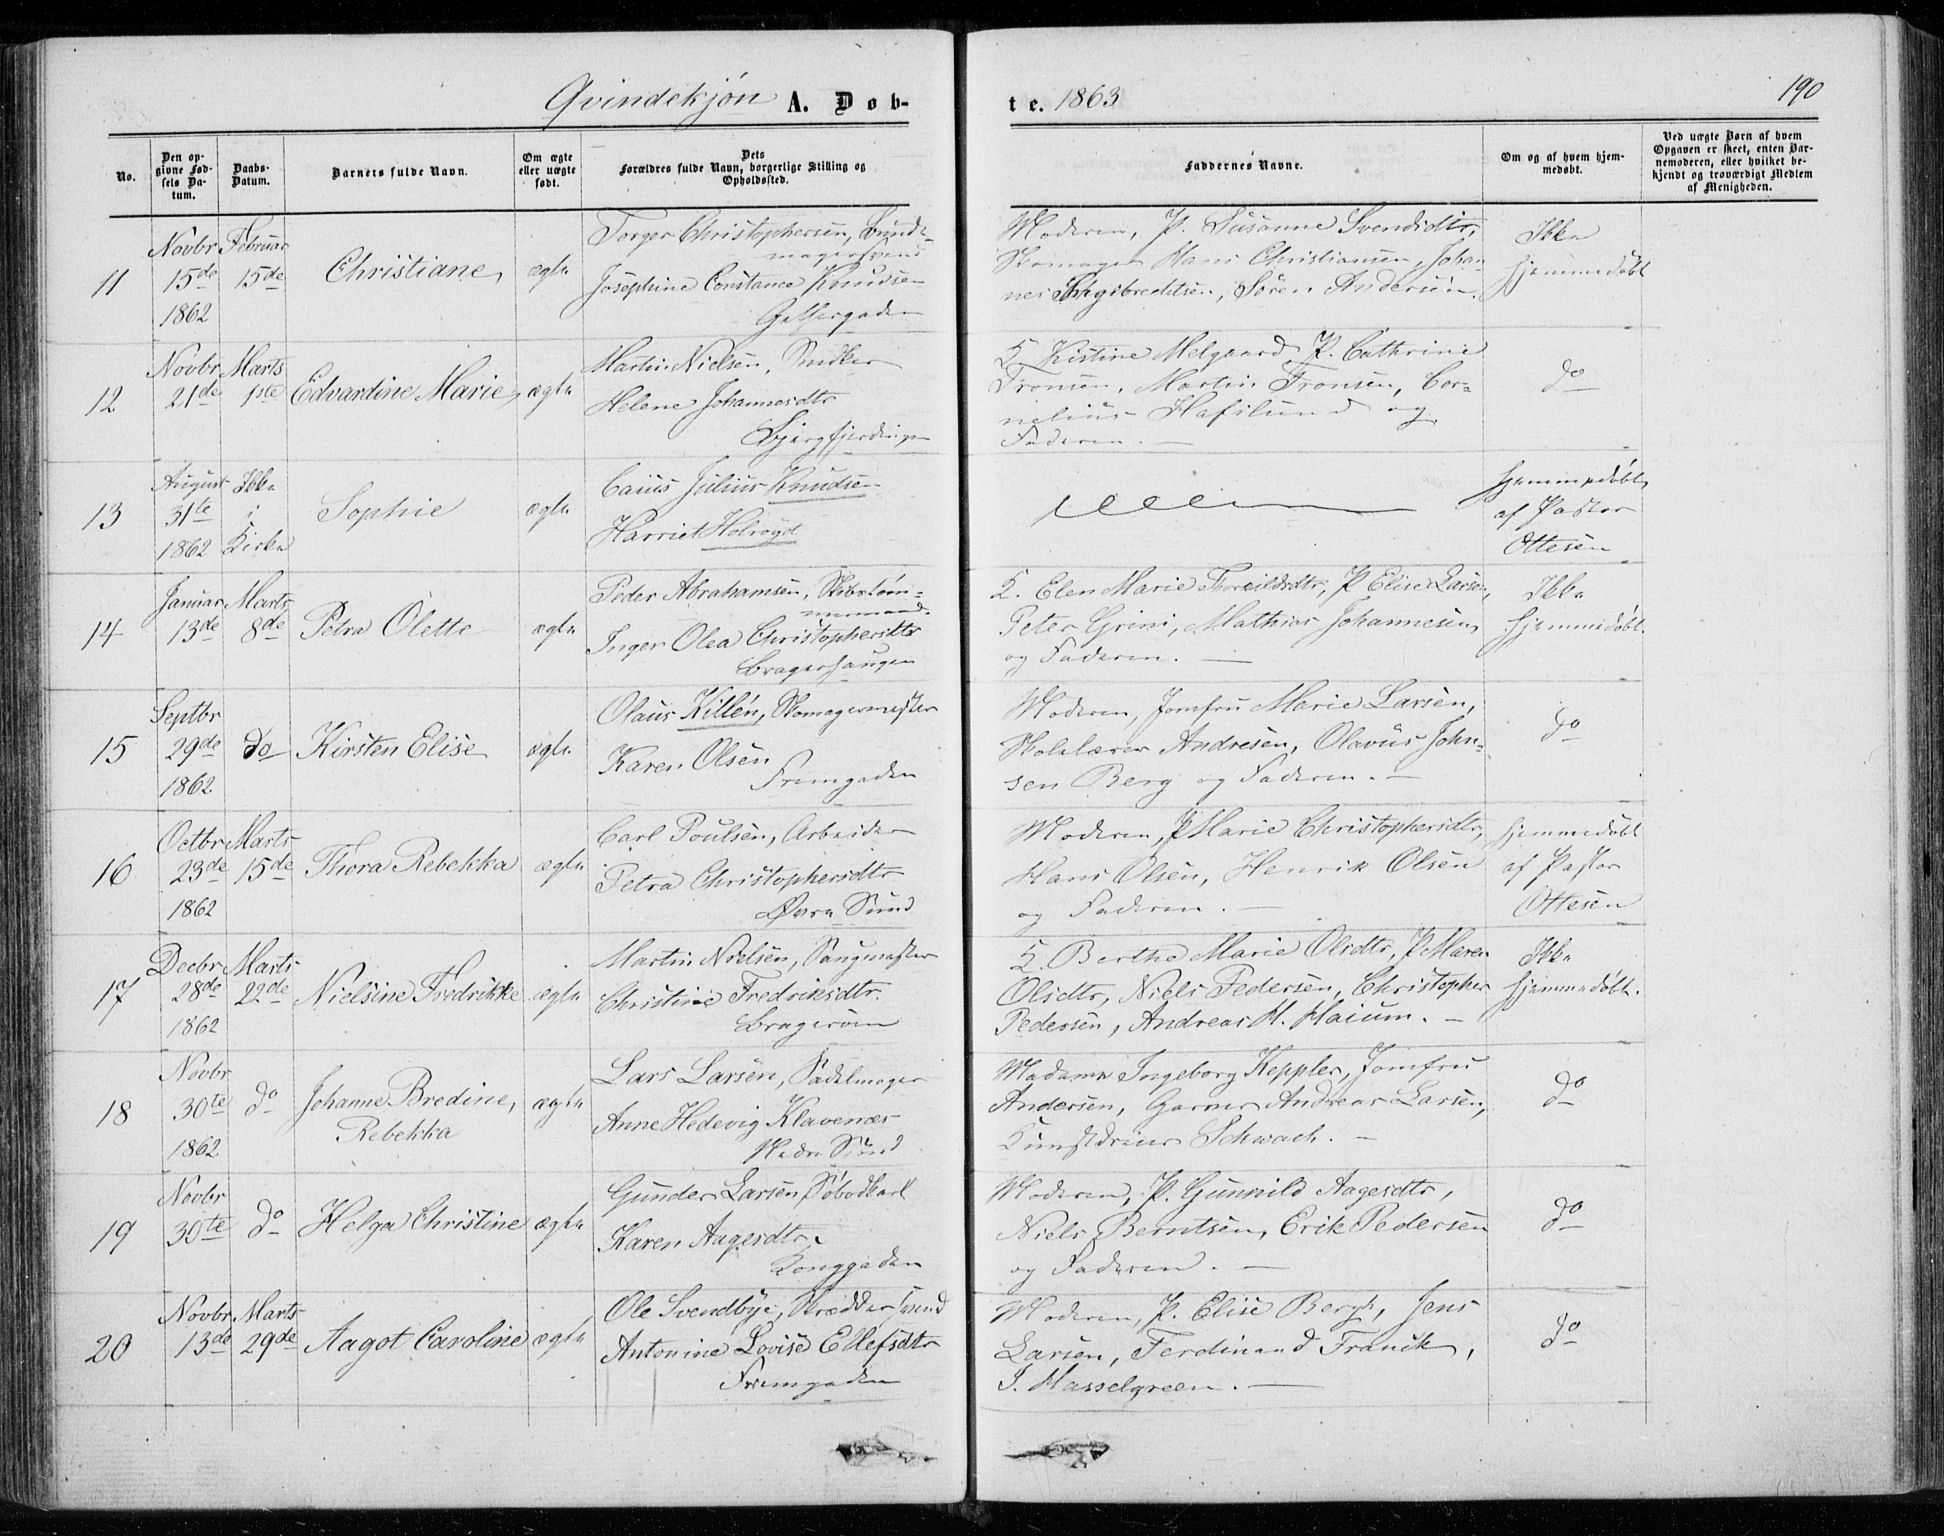 Qvindekjøn A. Døb-
te. 1863
190
No.
Den op-
givne Fød-
sels Da-
tum.
Daabs-
Datum.
Barnets fulde Navn.
Om ægte
eller uægte
født.
Dets
Forældres fulde Navn, borgerlige Stilling og
Opholdssted.
Faddernes Navne.
Om og af hvem hjem-
medøbt.
Ved uægte Børn af hvem
Opgaven er skeet, enten Bar-
nemoderen, eller hvilket be-
kjendt og troværdigt Medlem
af Menigheden.
11
Novbr
15de
1862
Februar
15de
Christiane
ægte
Torger Christophersen, Bundt-
magersvend
Josephine Constance Knudsen
Gjethergaden
Moderen, P. Susanne Svendsdtr,
Skomager Hans Christiansen, Johan-
nes Ingebrechtsen, Søren Andersen.
Ikke
hjemmedøbt
12
Novbr
21de
Marts
1ste
Edvardine Marie
ægte
Martin Nielsen, Snedker
Helene Johannesdtr
Bjergfjerdingen
K. Kistine Melgaard, P. Cathrine
Fronsen, Martin Fronsen, Cor-
nelius Hafslund og
Faderen. —
do
13
August
31te
1862
Ikke
i
Kirke
Sophie
ægte
Caius Julius Knudsen
Harriet Holroyd
hjemmedøbt
af Pastor
Ottesen
14
Januar
13de
Marts
8de
Petra Olette
ægte
Peder Abrahamsen, Skibstøm-
mermand.
Inger Olea Christophersdtr
Bragerhaugen
K. Elen Marie Thorkildsdtr, P Elise Larsen,
Peter Grini, Mathias Johannesen
og Faderen. —
Ikke
hjemmedøbt.
15
Septbr
29de
1862
do
Kirsten Elise
ægte
Olaus Killén, Skomagermester
Karen Olsen
Fremgaden
Moderen, Jomfru Marie Larsen,
Skolelærer Andresen, Olavus John-
sen Berg og Faderen. —
do
16
Octbr
23de
1862
Marts
15de
Thora Rebekka
ægte
Carl Poulsen, Arbeider
Petra Christophersdtr
Øvre Sund
Moderen, P Marie Christophersdtr,
Hans Olsen, Henrik Olsen
og Faderen. —
hjemmedøbt
af Pastor
Ottesen
17
Decbr
28de
1862
Marts
22de
Nielsine Fredrikke
ægte
Martin Nielsen, Saugmester
Christine Fredriksdtr.
Bragerøen
K. Berthe Marie Olsdtr, P. Maren
Olsdtr, Niels Pedersen, Christopher
Pedersen, Andreas H. Haium. —
Ikke
hjemmedøbt.
18
Novbr
30te
1862
do
Johanne Bredine,
Rebekka
ægte
Lars Larsen, Sadelmager
Anne Hedevig Klavenæs
Nedre Sund
Madame Ingeborg Keppler, Jomfru
Andersen, Garver Andreas Larsen,
Kunstdreier Schwach. —
do
19
Novbr
30te
do
Helga Christine
ægte
Gunder Larsen, Søbodkarl
Karen Aagesdtr.
Konggaden
Moderen, P. Gunhild Aagesdtr,
Niels Berntsen, Erik Pedersen
og Faderen. —
do
20
Novbr
13de
Marts
29de
Aagot Caroline
ægte
Ole Svendbye, Skræddersvend
Antonine Lovise Ellefsdtr
Fremgaden
Moderen, P. Elise Bergh, Jens
Larsen, Ferdinand Franck,
J. Hasselgreen. —
do